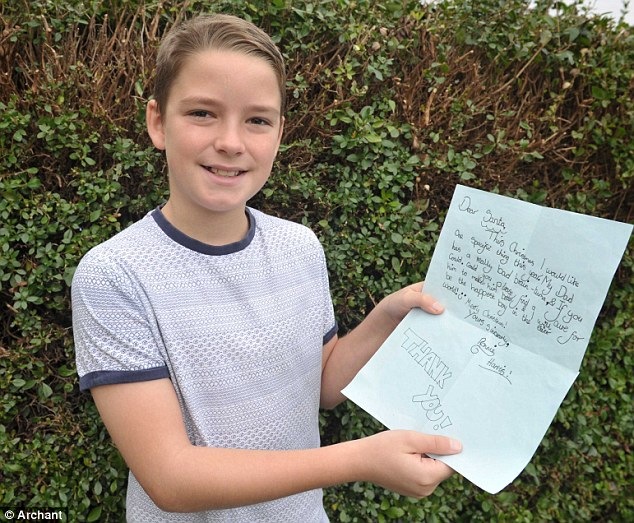 Dear Santa,
This I would like
One special thing this year. My Dad
has a really bad & If you
could, could you please find a cure for
him to make him
be the happiest boy in the
world! Merry Christmas!
Yours sincerely
THANK
YOU!
© Archant